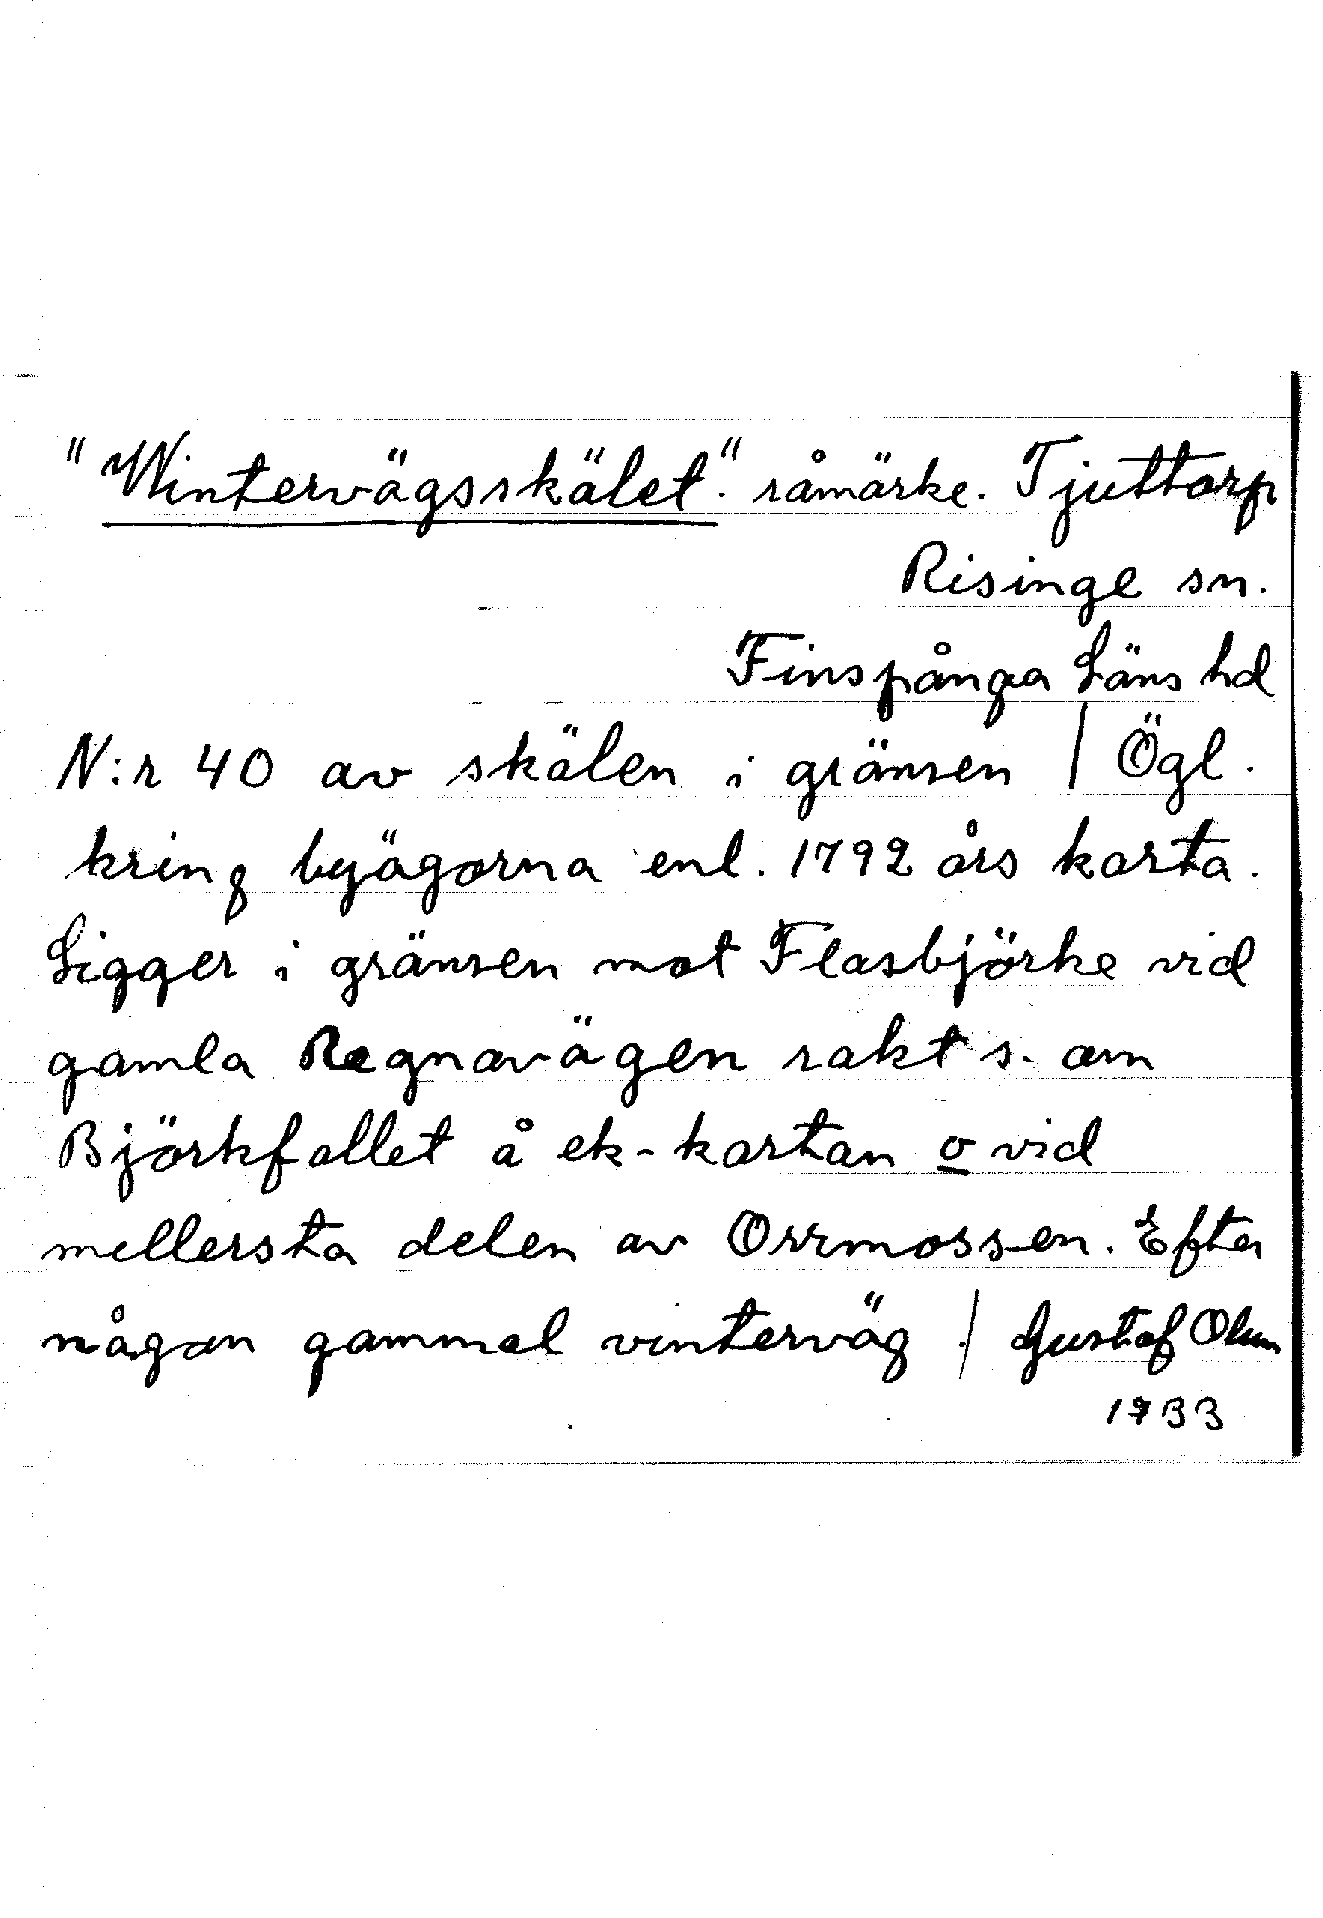 "Wintervägsskälet". råmärke. Tjuttorp
Risinge sn.
Finspånga Läns hd
N:r 40 av skälen i gränsen / Ögl.
kring byägorna enl. 1792 års karta.
Ligger i gränsen mot Flasbjörke vid
gamla Regnavägen rakt s. om
Björkfallet å ek-kartan o vid
mellersta delen av Orrmossen. Efter
någon gammal vinterväg / Gustaf
1933